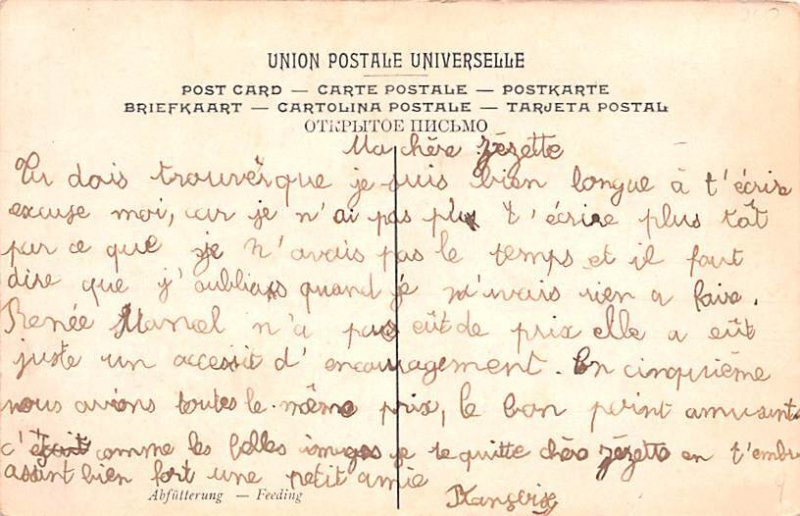 UNION POSTALE UNIVERSELLE
POST CARD — CARTE POSTALE — POSTKARTE
BRIEFKAART — CARTOLINA POSTALE — TARJETA POSTAL
ОТКРЫТОЕ ПИСЬМО
Ma chère Zézette
Tu dois trouver que je suis bien longue à t'écrire
excuse moi, car je n'ai pas plu t'écrire plus tôt
par ce que je n'avais pas le temps et il faut
dire que j'oubliais quand je n'avais rien a faire.
Renée Marcel n'a pas eût de prix elle a eût
juste un accessit d'encouragement. En cinquième
nous avions toutes le même prix, le bon point amusant
c'était comme les folles images je te quitte chère Zézette en t'embr
assant bien fort une petit amie
Abfütterung — Feeding